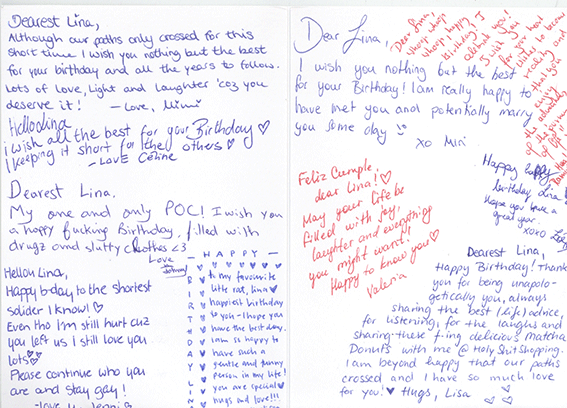 Dearest Lina,
Although our paths only crossed for this
short time I wish you nothing but the best
for your birthday and all the years to follows.
Lots of love, Light and laughter 'coz you
deserve it! – Love, Mimi
Hello Lina,
i wish all the best for your Birthday ♡
I keeping it short for the others ♡
- LOVE Céline
Dearest Lina.
My one and only POC! I wish you
a happy fucking Birthday, filled with
drugz and slutty clothes <3
Love
Hellou Lina,
Happy b-day to the shortest
solider I know! ♡
Even tho I'm still hurt cuz
you left us I still love you
lots ♡
Please continue who you
are and stay gay!
- HAPPY -
BIRTHDAY LIN
to my favourite
little rat, lina ♡
happiest birthday
to you - I hope you
have the best day.
I am so happy to
have such a
gentle and funny
person in my life!
you are special ♡
hugs and love!!!
Dear Lina,
I wish you nothing but the best
for your Birthday! I am really happy to
have met you and potentially marry
you some day
xo Miri
Dear Lina,
whoop whoop
whoop happy
birthday! I
I wish you
Feliz Cumple,
dear Lina! ♡
May your life be
filled with joy,
laughter and everything
you might want!
Happy to know you ♡
Valeria
Happy happy
birthday Lina!
Hope you have a
great year.
xoxo
Dearest Lina,
Happy Birthday! Thank
you for being unapolo-
getically you, always
sharing the best (life) advice,
for listening, for the laughs and
sharing these f-ing delicious matcha
Donuts with me @ Holy Shit Shopping.
I am beyond happy that our paths
crossed and I have so much love
for you! ♥ Hugs, Lisa ♡